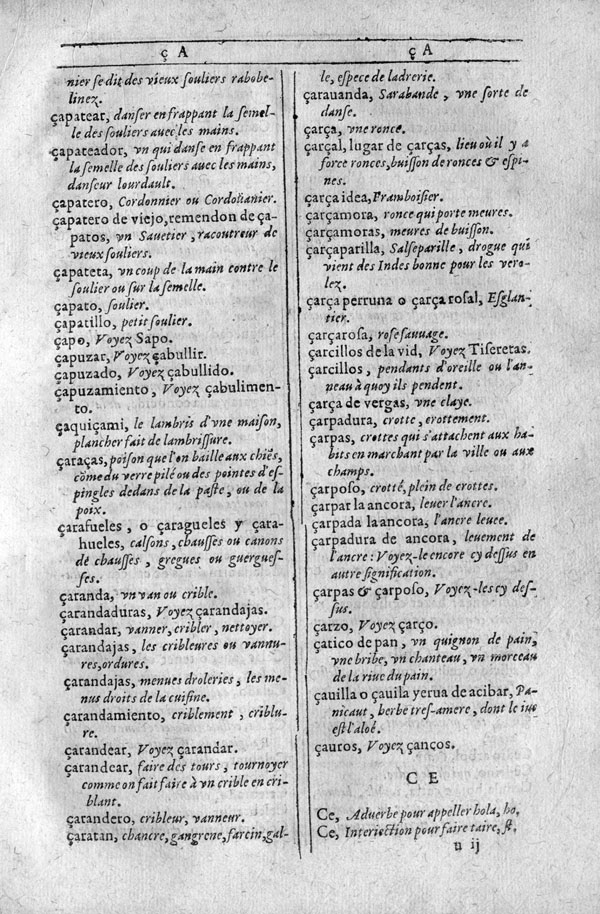 çA
nier se dit des vieux souliers rabobe-
linez.
çapatear, danser en frappant la semel-
le des souliers auec les mains.
çapateador, vn qui danse en frappant
la semelle des souliers auec les mains,
danseur lourdault.
çapatero, Cordonnier ou Cordoüanier.
çapatero de viejo, remendon de ça-
patos, vn Sauetier, racoutreur de
vieux souliers.
çapateta, vn coup de la main contre le
soulier ou sur la semelle.
çapato, soulier.
çapatillo, petit soulier.
çapo, Voyez Sapo.
çapuzar, Voyez çabullir.
çapuzado, Voyez çabullido.
çapuzamiento, Voyez çabulimen-
to.
çaquiçami, le lambris d'vne maison,
plancher fait de lambrissure.
çaraças, poison que l'on baille aux chiẽs,
cõme du verre pilé ou des pointes d'es-
pingles dedans de la paste, ou de la
poix.
çarafueles, o çaragueles y çara-
hueles, calsons, chausses ou canons
de chausses, gregues ou guergues-
ses.
çaranda, vn van ou crible.
çarandaduras, Voyez çarandajas.
çarandar, vanner, cribler, nettoyer.
çarandajas, les cribleures ou vannu-
res, ordures.
çarandajas, menues droleries, les me-
nus droits de la cuisine.
çarandamiento, criblement, criblu-
re.
çarandear, Voyez çarandar.
çarandear, faire des tours, tournoyer
comme on fait faire à vn crible en cri-
blant.
çarandero, cribleur, vanneur.
çaratan, chancre, gangrene, farcin, gal-
çA
le, espece de ladrerie.
çarauanda, Sarabande, vne sorte de
danse.
çarça, vne ronce.
çarçal, lugar de çarças, lieu où il y a
force ronces, buisson de ronces & espi-
nes.
çarça idea, Framboisier.
çarçamora, ronce qui porte meures.
çarçamoras, meures de buisson.
çarçaparilla, Salseparille, drogue qui
vient des Indes bonne pour les vero-
lez.
çarça perruna o çarça rosal, Esglan-
tier.
çarçarosa, rose sauuage.
çarcillos de la vid, Voyez Tiseretas.
çarcillos, pendants d'oreille ou l'an-
neau à quoy ils pendent.
çarça de vergas, vne claye.
çarpadura, crotte, crottement.
çarpas, crottes qui s'attachent aux ha-
bits en marchant par la ville ou aux
champs.
çarposo, crotté, plein de crottes.
çarpar la ancora, leuer l'ancre.
çarpada la ancora, l'ancre leuee.
çarpadura de ancora, leuement de
l'ancre: Voyez-le encore cy dessus en
autre signification.
çarpas & çarposo, Voyez-les cy des-
sus.
çarzo, Voyez çarço.
çatico de pan, vn quignon de pain,
vne bribe, vn chanteau, vn morceau
de la riue du pain.
çauilla o çauila yerua de acibar, Pa-
nicaut, herbe tres-amere, dont le ius
est l'aloé.
çauros, Voyez çancos.
C E
Ce, Aduerbe pour appeller hola, ho.
Ce, Interiection pour faire taire, st.
u ij